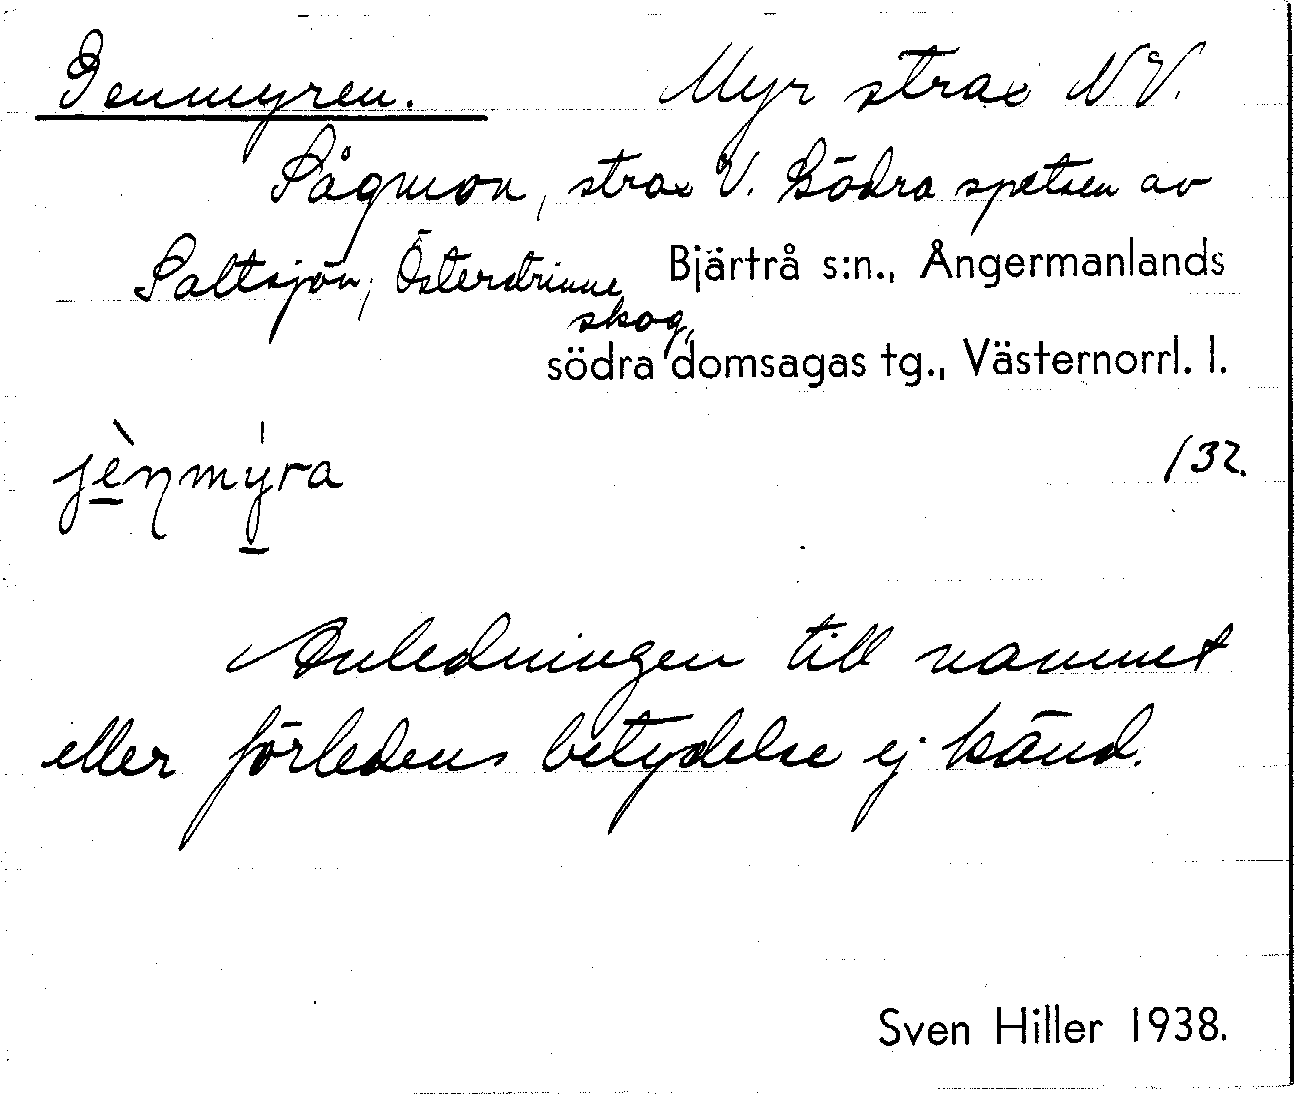 Genmyren. Myr strax NV.
Sågmon, strax V. Södra spetsen av
Saltsjön, Österstrinne Bjärtrå s:n., Ångermanlands
skog,
södra domsagas tg., Västernorrl. l.
jèŋmy̍ra /32.
Anledningen till namnet
eller förledens betydelse ej känd.
Sven Hiller 1938.